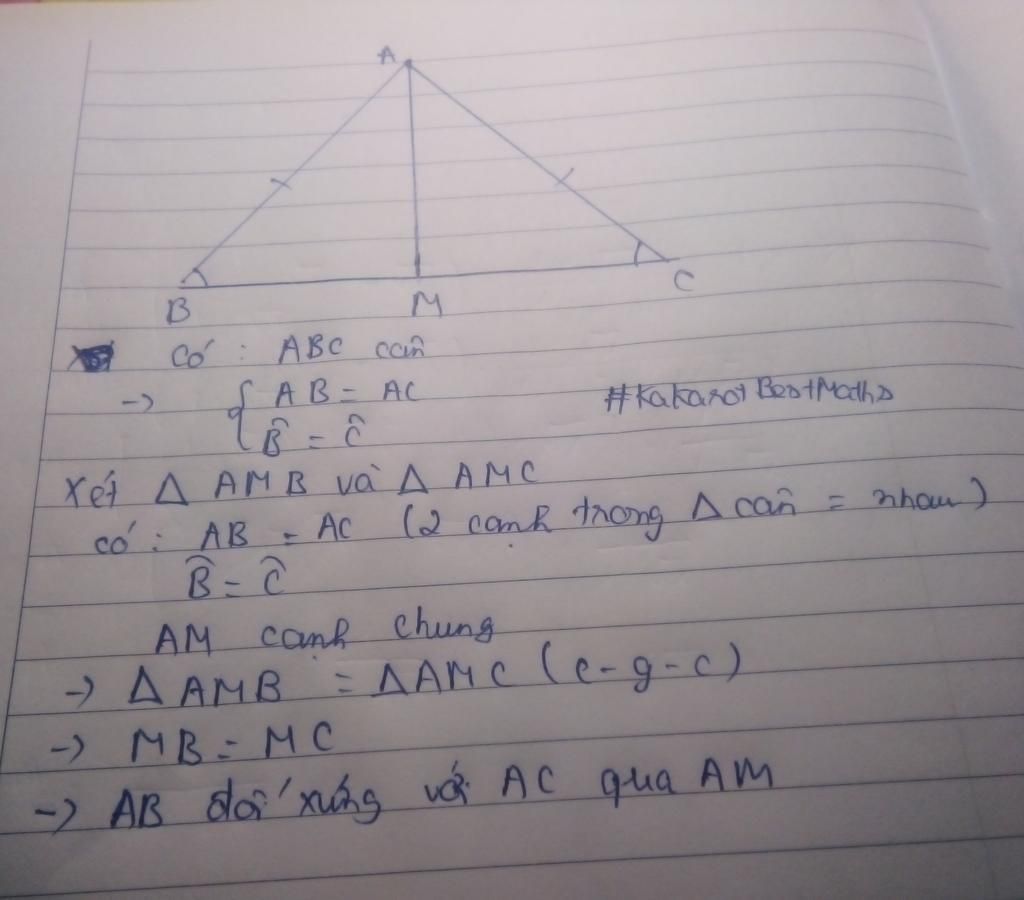 A
B
M
C
Có : ABC cân
-> { AB = AC
B̂ = Ĉ
#KakarotBestMaths
Xét Δ AMB và Δ AMC
có : AB = AC (2 cạnh trong Δ cân = nhau)
B̂ = Ĉ
AM cạnh chung
-> Δ AMB = Δ AMC (c-g-c)
-> MB = MC
-> AB đối xứng với AC qua AM